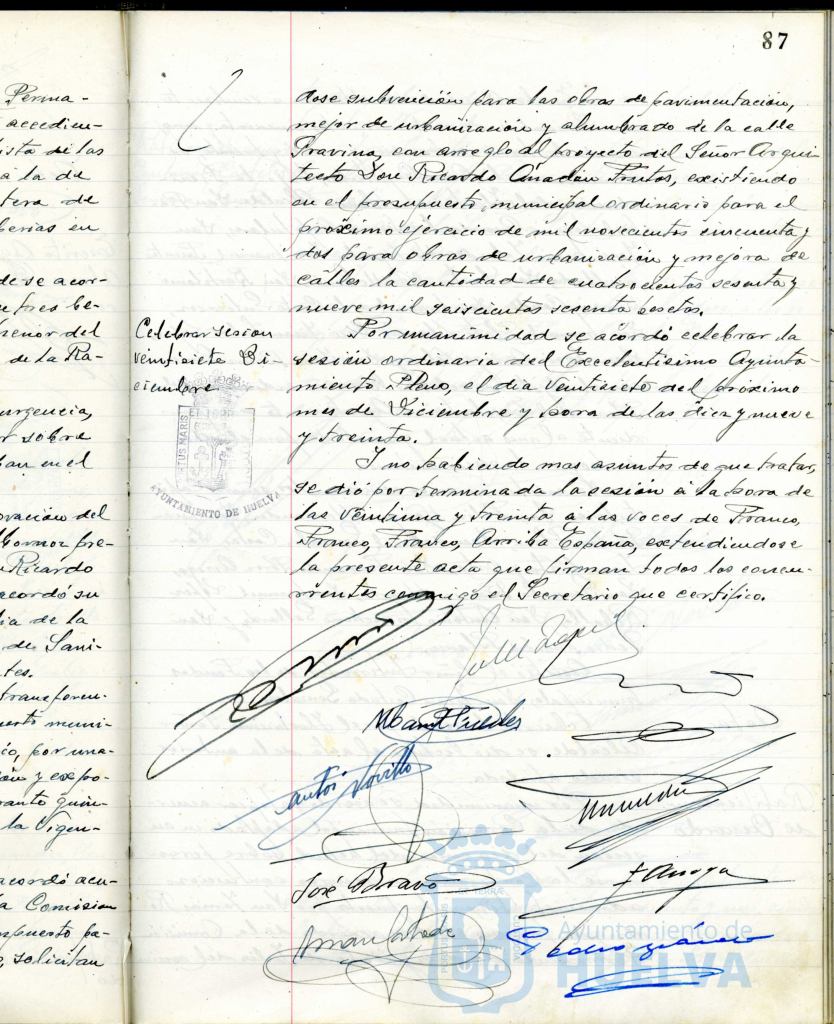 Perma-
accedien-
ista de las
a la de
tera de
berias en
de se acor-
n tres be-
tenor del
de la Ra-
urgencia,
r sobre
ban en el
ovación del
Ricardo
acordó su
ia de la
de Sani-
tes.
transferen-
uesto muni-
co, por una-
ión y expo-
la vigen-
acordó acu-
a Comision
supuesto ba-
, solicitan
87
dose subvención para las obras de pavimentación,
mejor de urbanización y alumbrado de la calle
Travina, con arreglo al proyecto del Señor Arqui
tecto Don Ricardo Anadon Frutos, existiendo
en el presupuesto municipal ordinario para el
próximo ejercicio de mil novecientos cincuenta y
dos para obras de urbanización y mejora de
calles la cantidad de cuatrocientos sesenta y
nueve mil seiscientos sesenta pesetas.
Celebrar sesion
veintisiete Di-
ciembre
Por unanimidad se acordó celebrar la
sesión ordinaria del Excelentisimo Ayunta-
miento Pleno, el dia veintisiete del próximo
mes de Diciembre y hora de las diez y nueve
y treinta.
Y no habiendo mas asuntos de que tratar,
se dió por terminada la sesión á la hora de
las veintiuna y treinta á las voces de Franco,
Franco, Franco, Arriba España, extendiendose
la presente acta que firman todos los concu-
rrentes conmigo el Secretario que certifico.
TUS MARIS
AYUNTAMIENTO DE HUELVA
Novillo
José Bravo
Pedro
Ayuntamiento de
HUELVA